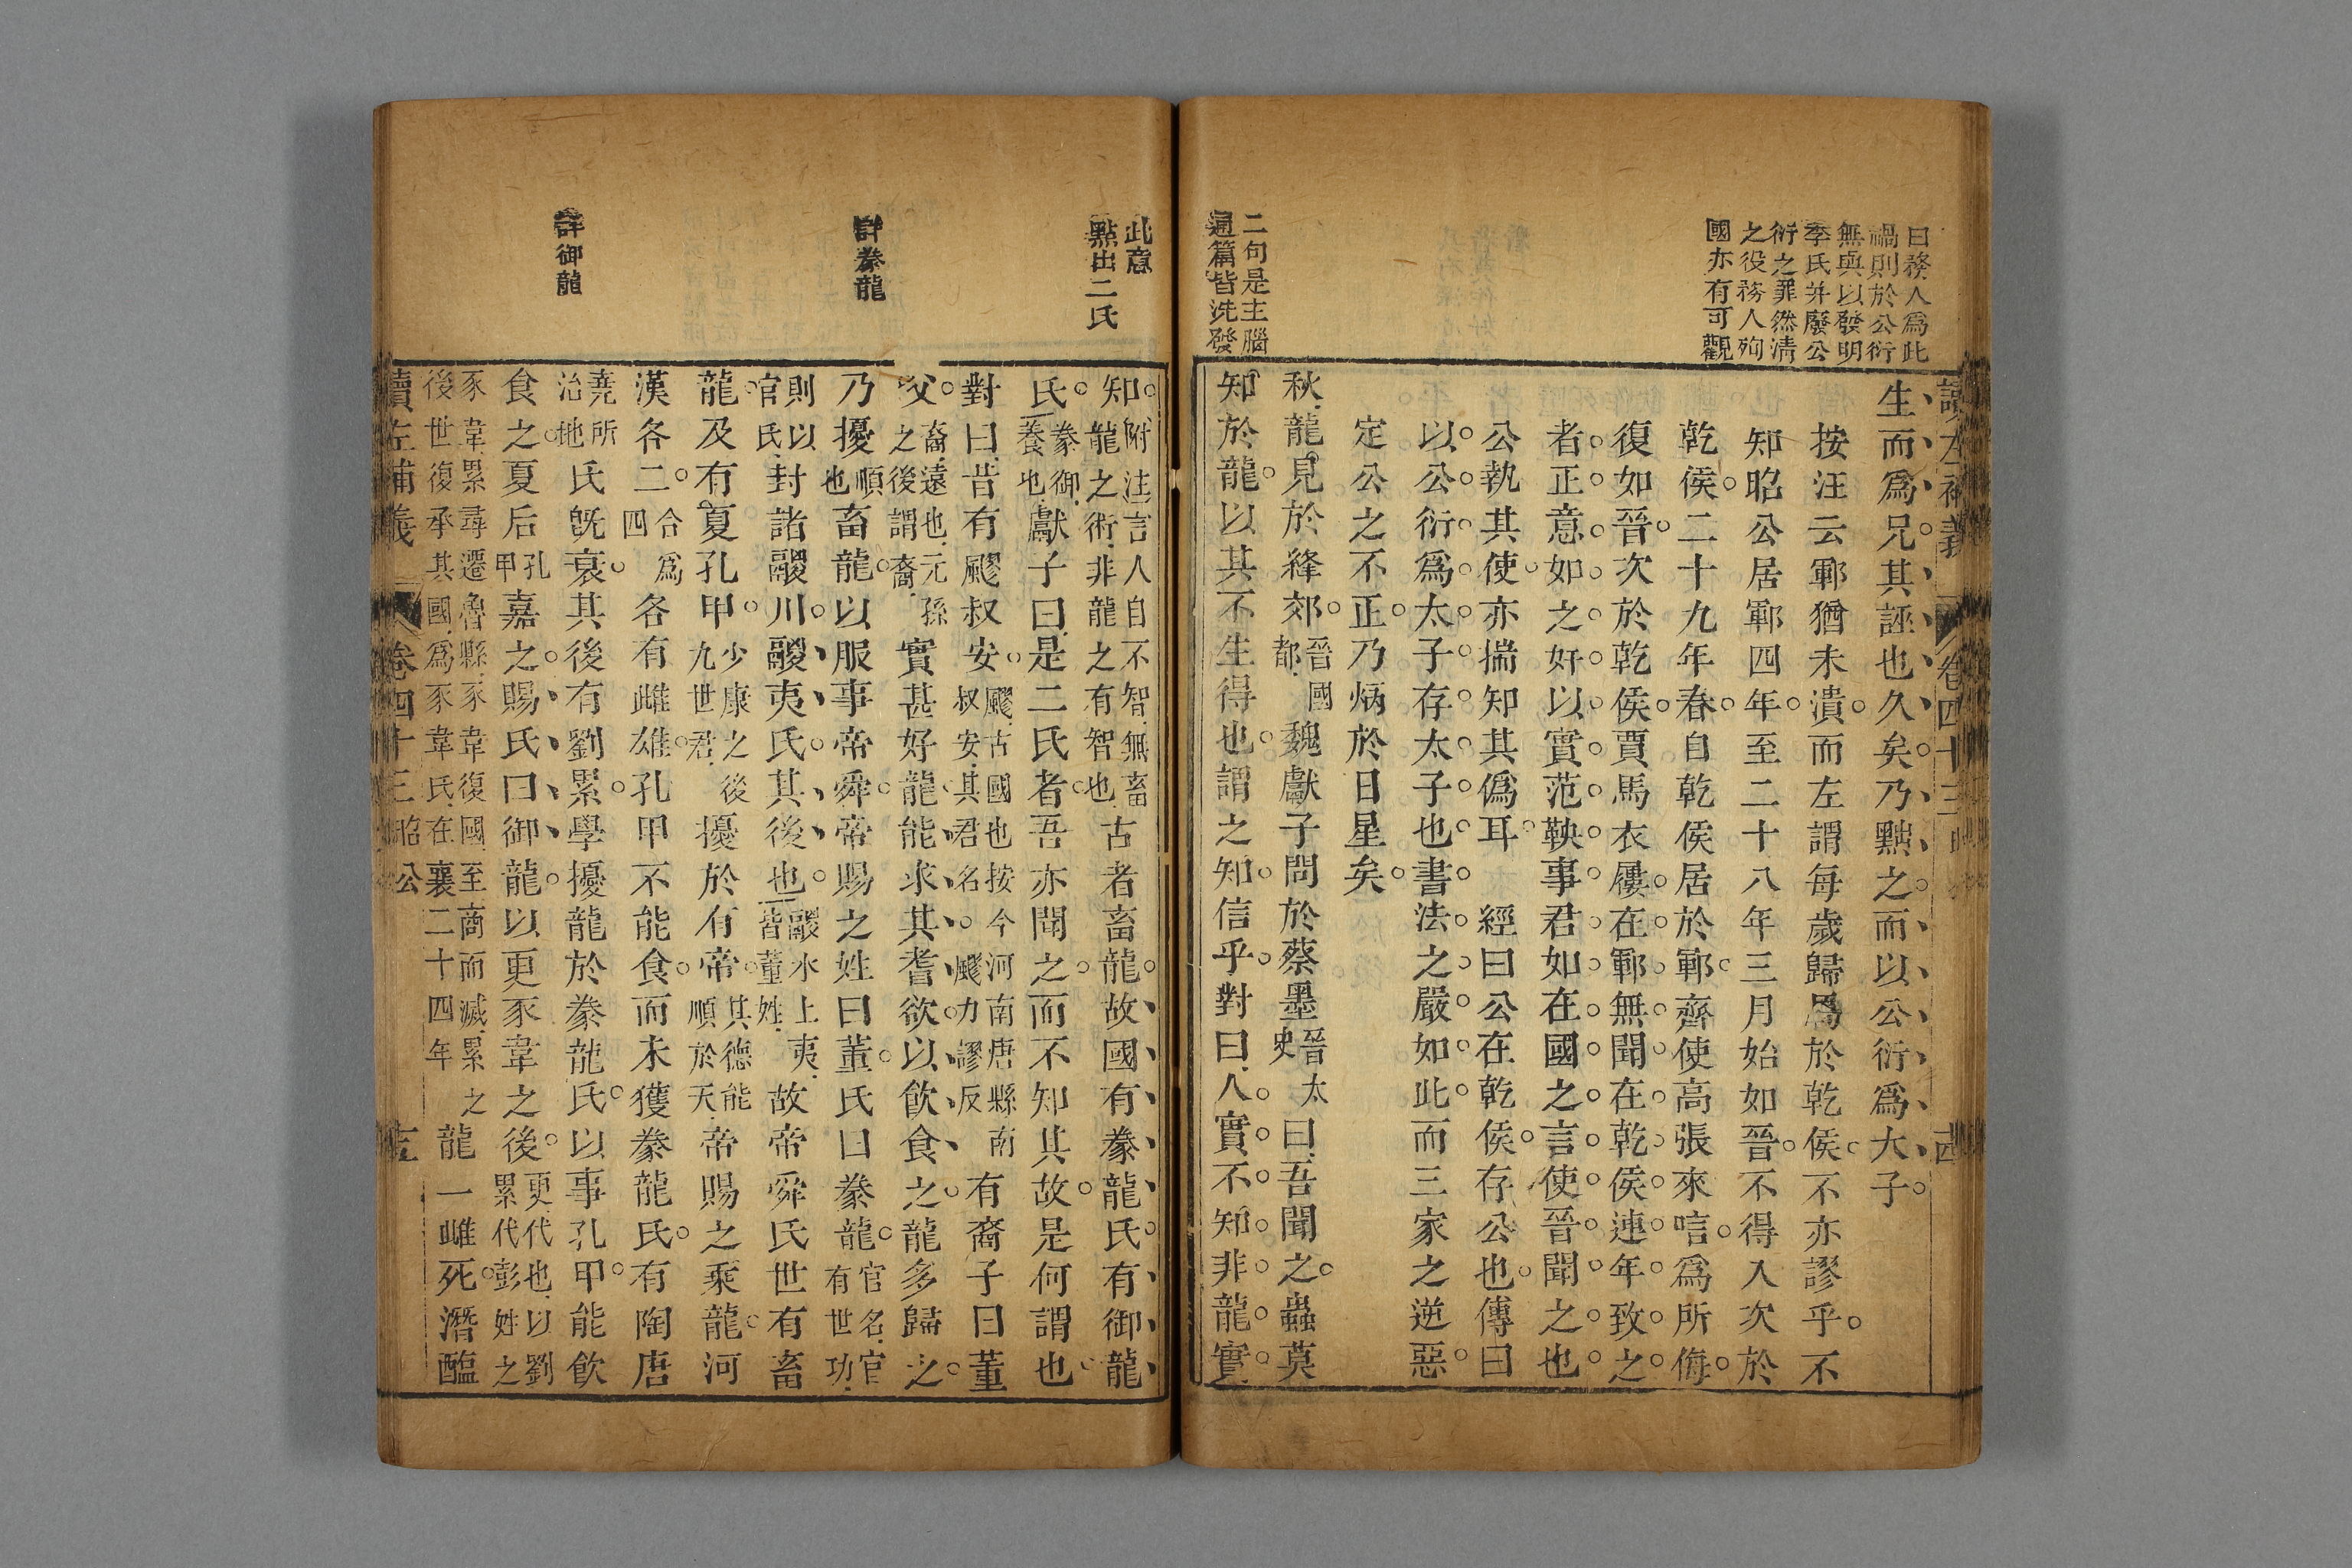 曰務人爲此
禍則於公衍
無與以發明
季氏并廢公
衍之罪然淸
之役務人殉
國亦有可觀
二句是主腦
通篇皆洗發
讀左補義
卷四十三
生而爲兄其誣也久矣乃黜之而以公衍爲大子
按汪云鄆猶未潰而左謂每歲歸馬於乾侯不亦謬乎不
知昭公居鄆四年至二十八年三月始如晉不得入次於
乾侯二十九年春自乾侯居於鄆齊使高張來唁爲所侮
復如晉次於乾侯賈馬衣屨在鄆無聞在乾侯連年致之
者正意如之奸以實范鞅事君如在國之言使晉聞之也
公執其使亦揣知其僞耳　經曰公在乾侯存公也傳曰
以公衍爲太子存太子也書法之嚴如此而三家之逆惡
定公之不正乃炳於日星矣
秋龍見於絳郊晉國都魏獻子問於蔡墨晉太史曰吾聞之蟲莫
知於龍以其不生得也謂之知信乎對曰人實不知非龍實
此意
點出二氏
詳豢龍
詳御龍
知附注言人自不智無畜龍之術非龍之有智也古者畜龍故國有豢龍氏有御龍
氏豢御養也獻子曰是二氏者吾亦聞之而不知其故是何謂也
對曰昔有飂叔安飂古國也按今河南唐縣南叔安其君名○飂力謬反有裔子曰董
父裔遠也元孫之後謂裔實甚好龍能求其耆欲以飮食之龍多歸之
乃擾順也畜龍以服事帝舜帝賜之姓曰董氏曰豢龍官名官有世功
則以官氏封諸鬷川鬷夷氏其後也鬷水上夷皆董姓故帝舜氏世有畜
龍及有夏孔甲少康之後九世君擾於有帝其德能順於天帝賜之乘龍河
漢各二合爲四各有雌雄孔甲不能食而未獲豢龍氏有陶唐
堯所治地氏旣衰其後有劉累學擾龍於豢龍氏以事孔甲能飮
食之夏后孔甲嘉之賜氏曰御龍以更豕韋之後更代也以劉累代彭姓之
豕韋累尋遷魯縣豕韋復國至商而滅累之後世復承其國爲豕韋氏在襄二十四年龍一雌死潛醢
讀左補義
卷四十三
昭公